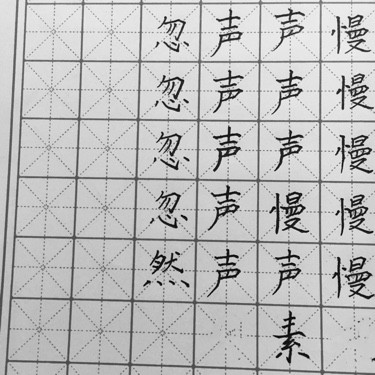 忽声声慢
忽声声慢
忽声声慢
忽声慢慢
然声声慢
素